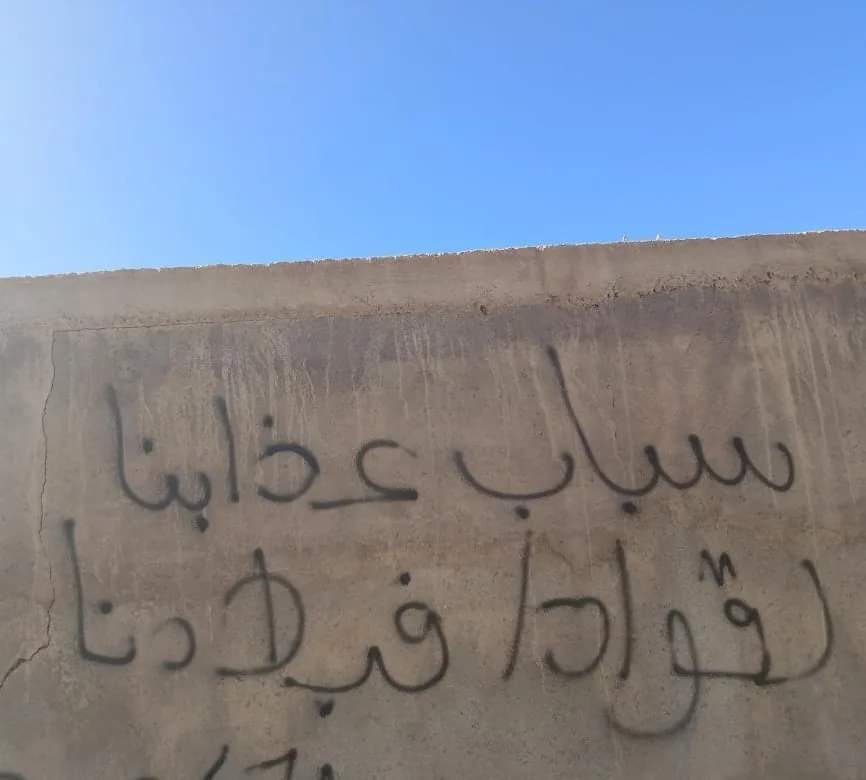 سباب عذابنا
لقوادا فبلادنا